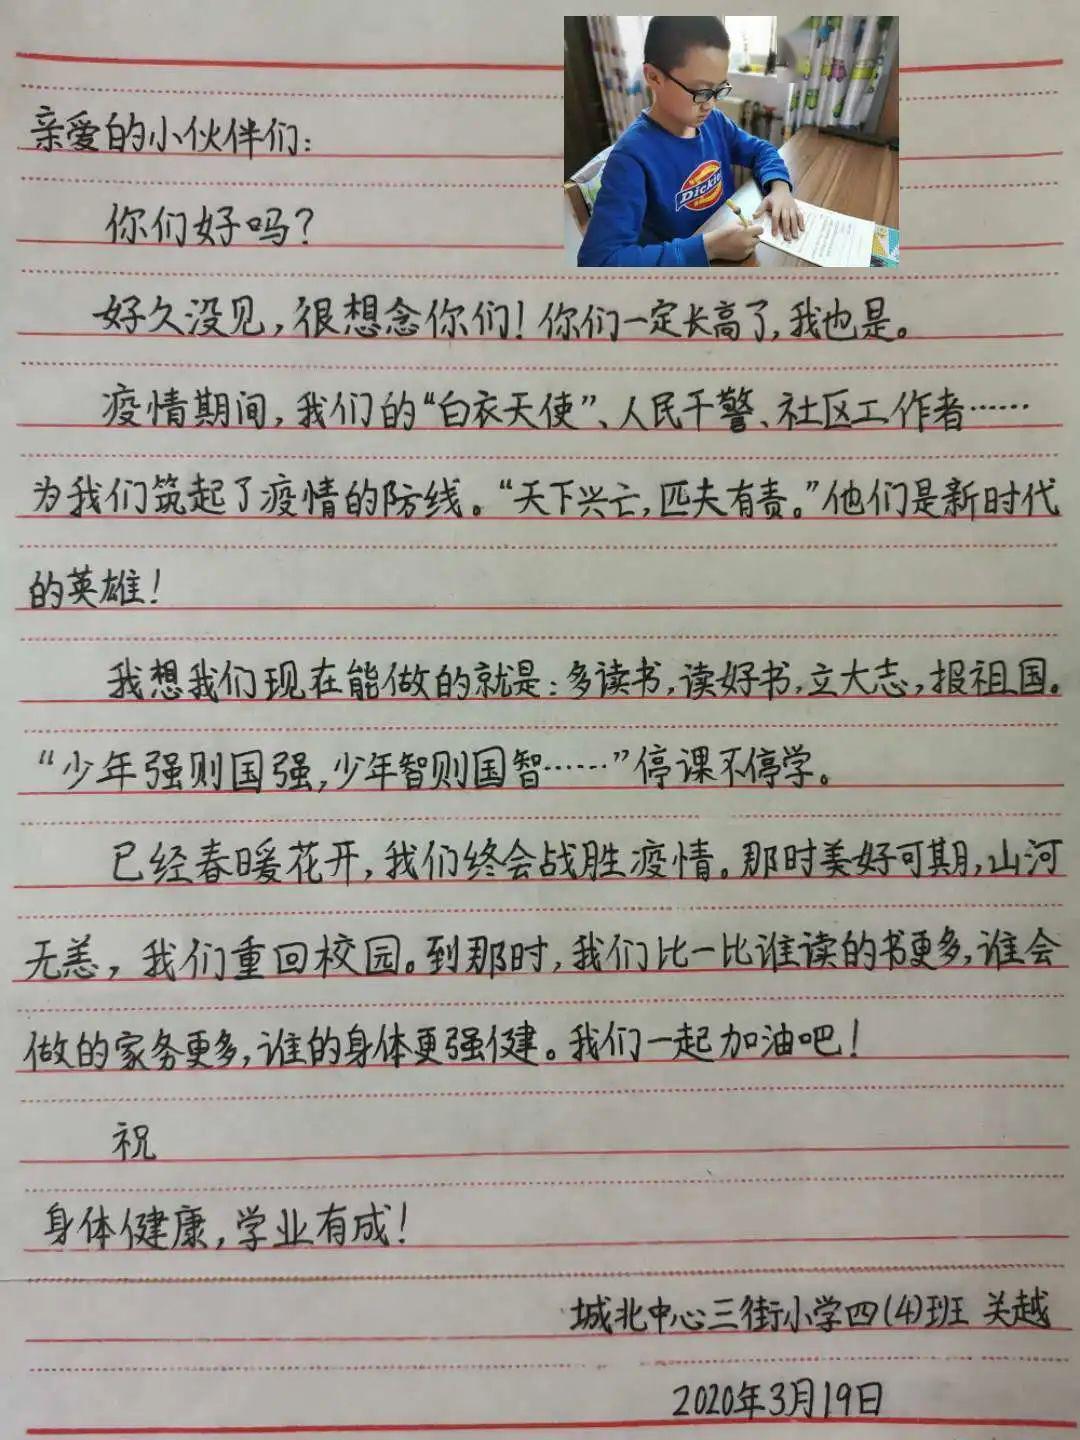 亲爱的小伙伴们：
你们好吗？
好久没见，很想念你们！你们一定长高了，我也是。
疫情期间，我们的“白衣天使”、人民干警、社区工作者……
为我们筑起了疫情的防线。“天下兴亡，匹夫有责。”他们是新时代
的英雄！
我想我们现在能做的就是：多读书，读好书，立大志，报祖国。
“少年强则国强，少年智则国智……”停课不停学。
已经春暖花开，我们终会战胜疫情。那时美好可期，山河
无恙，我们重回校园。到那时，我们比一比谁读的书更多，谁会
做的家务更多，谁的身体更强健。我们一起加油吧！
祝
身体健康，学业有成！
城北中心三街小学四(4)班 关越
2020年3月19日
Dickies